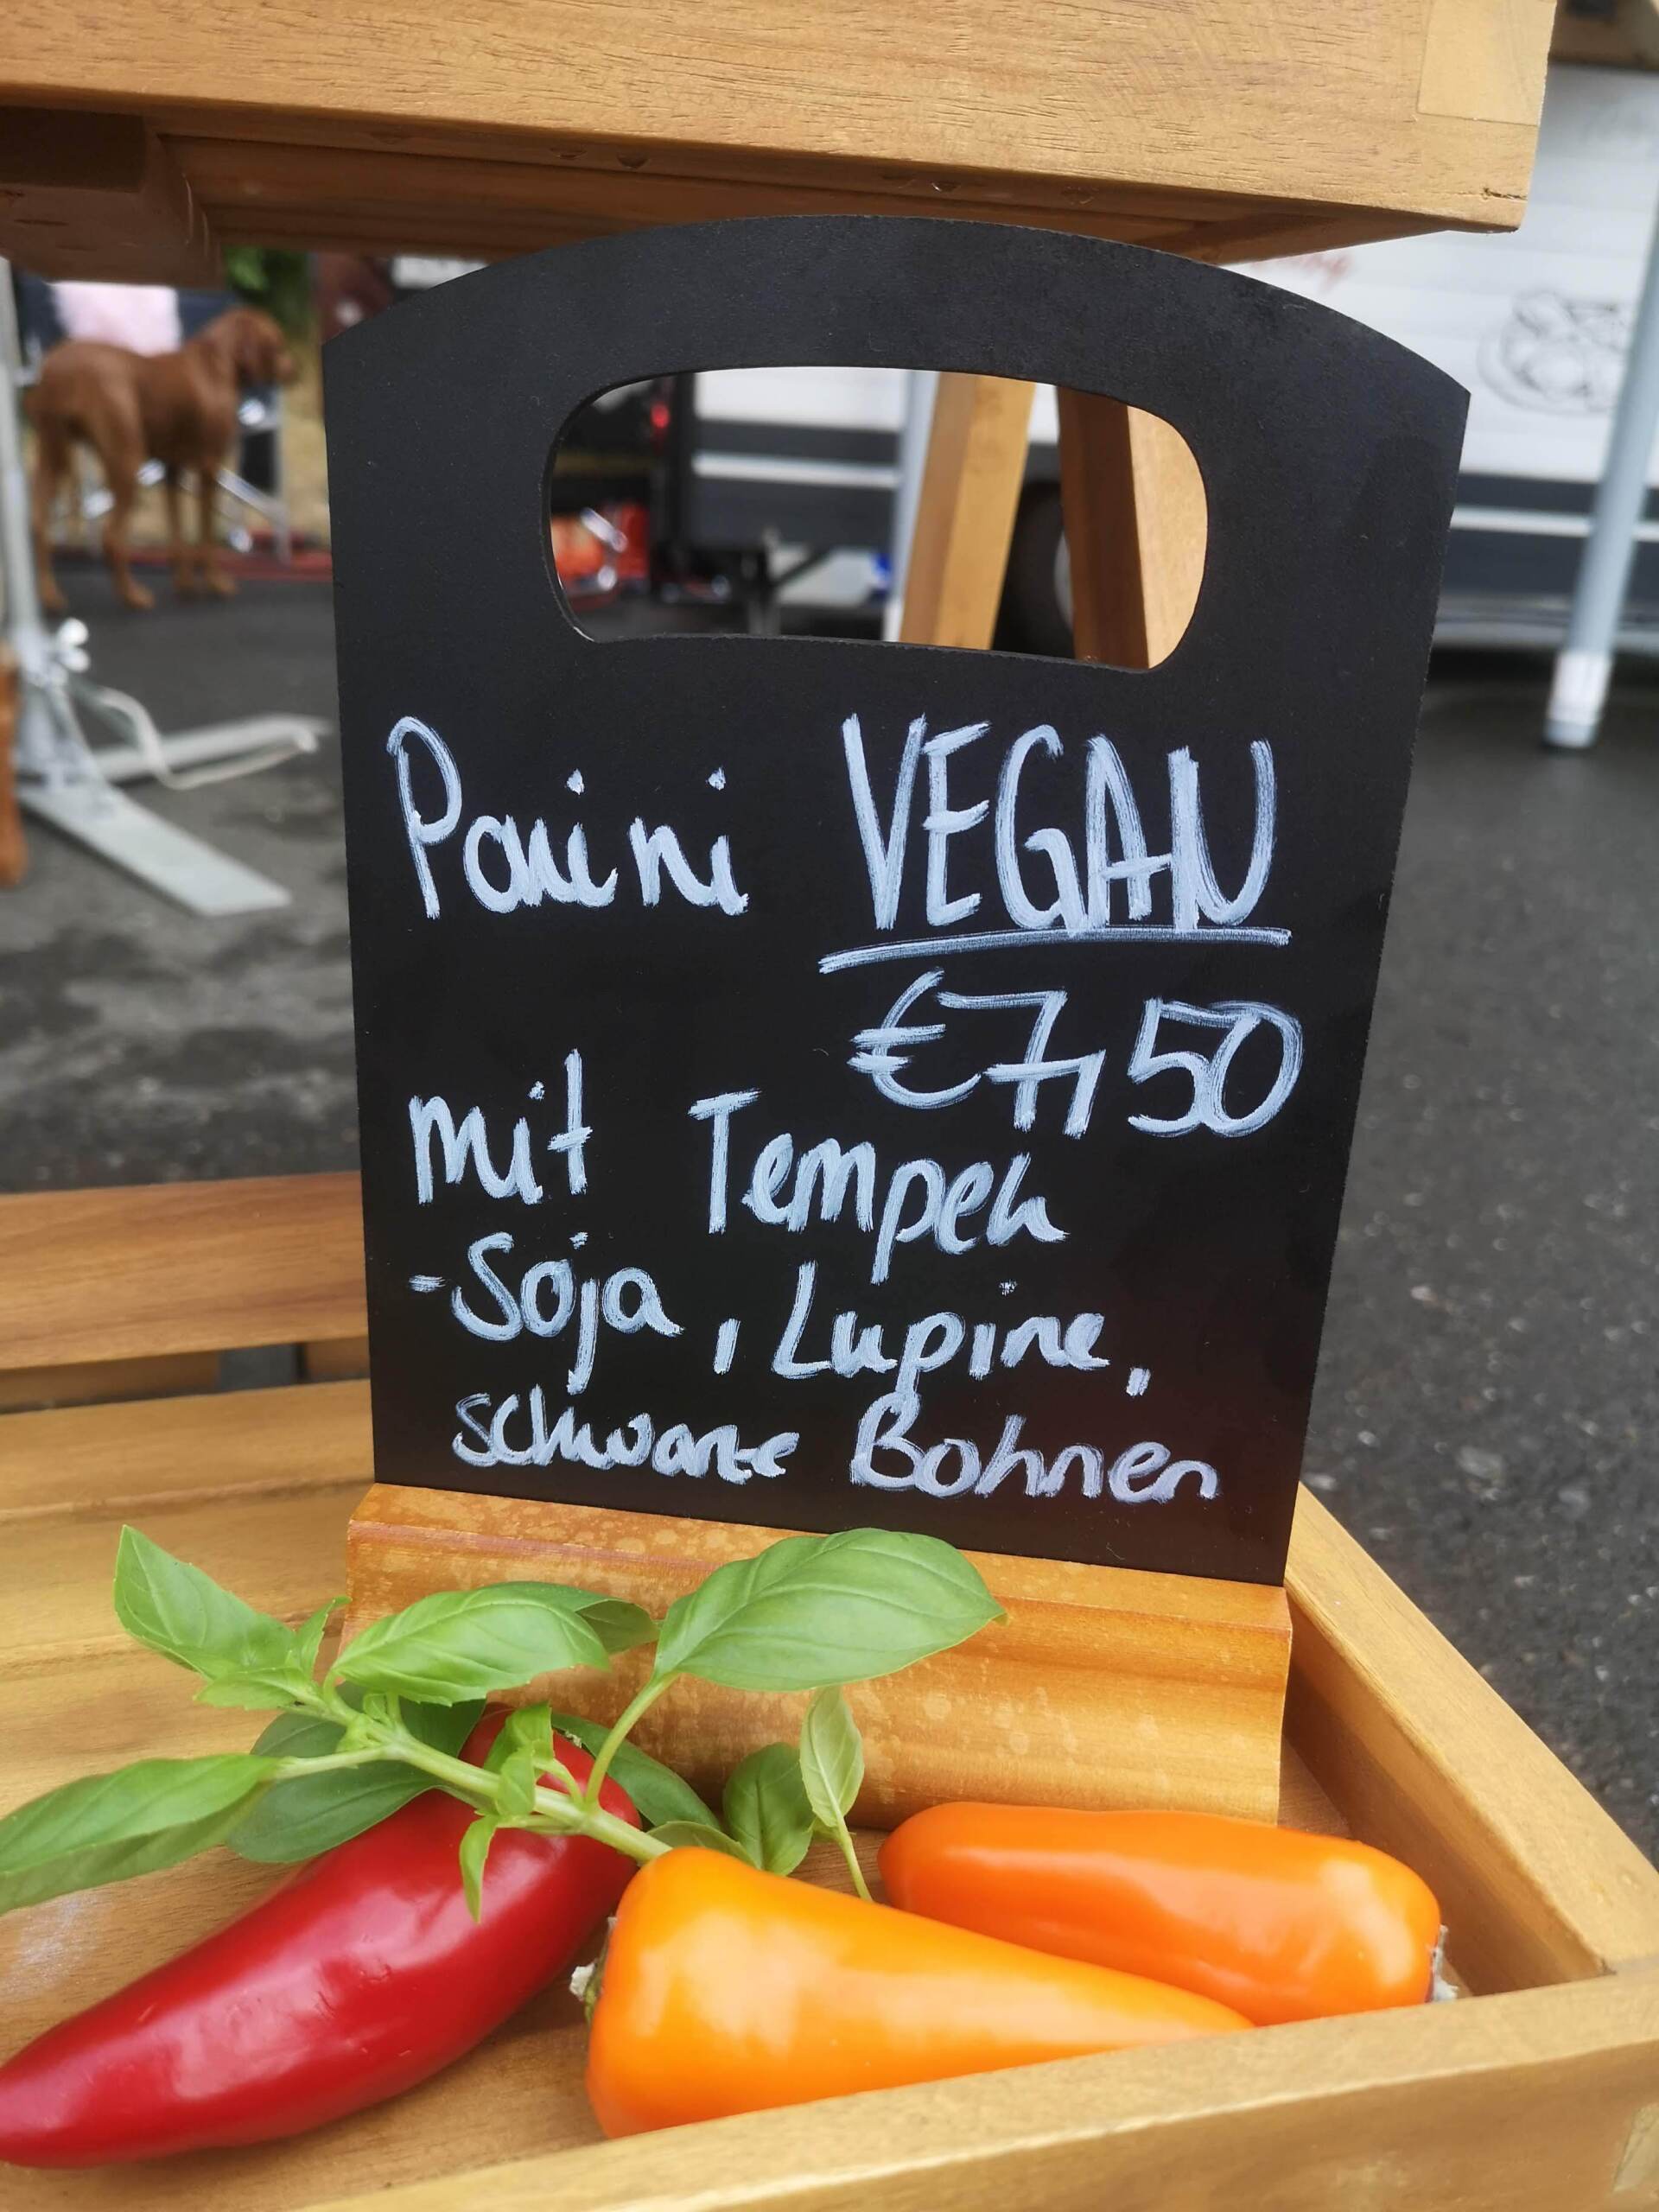 Panini VEGAN
€7,50
mit Tempeh
-Soja, Lupine,
schwarze Bohnen